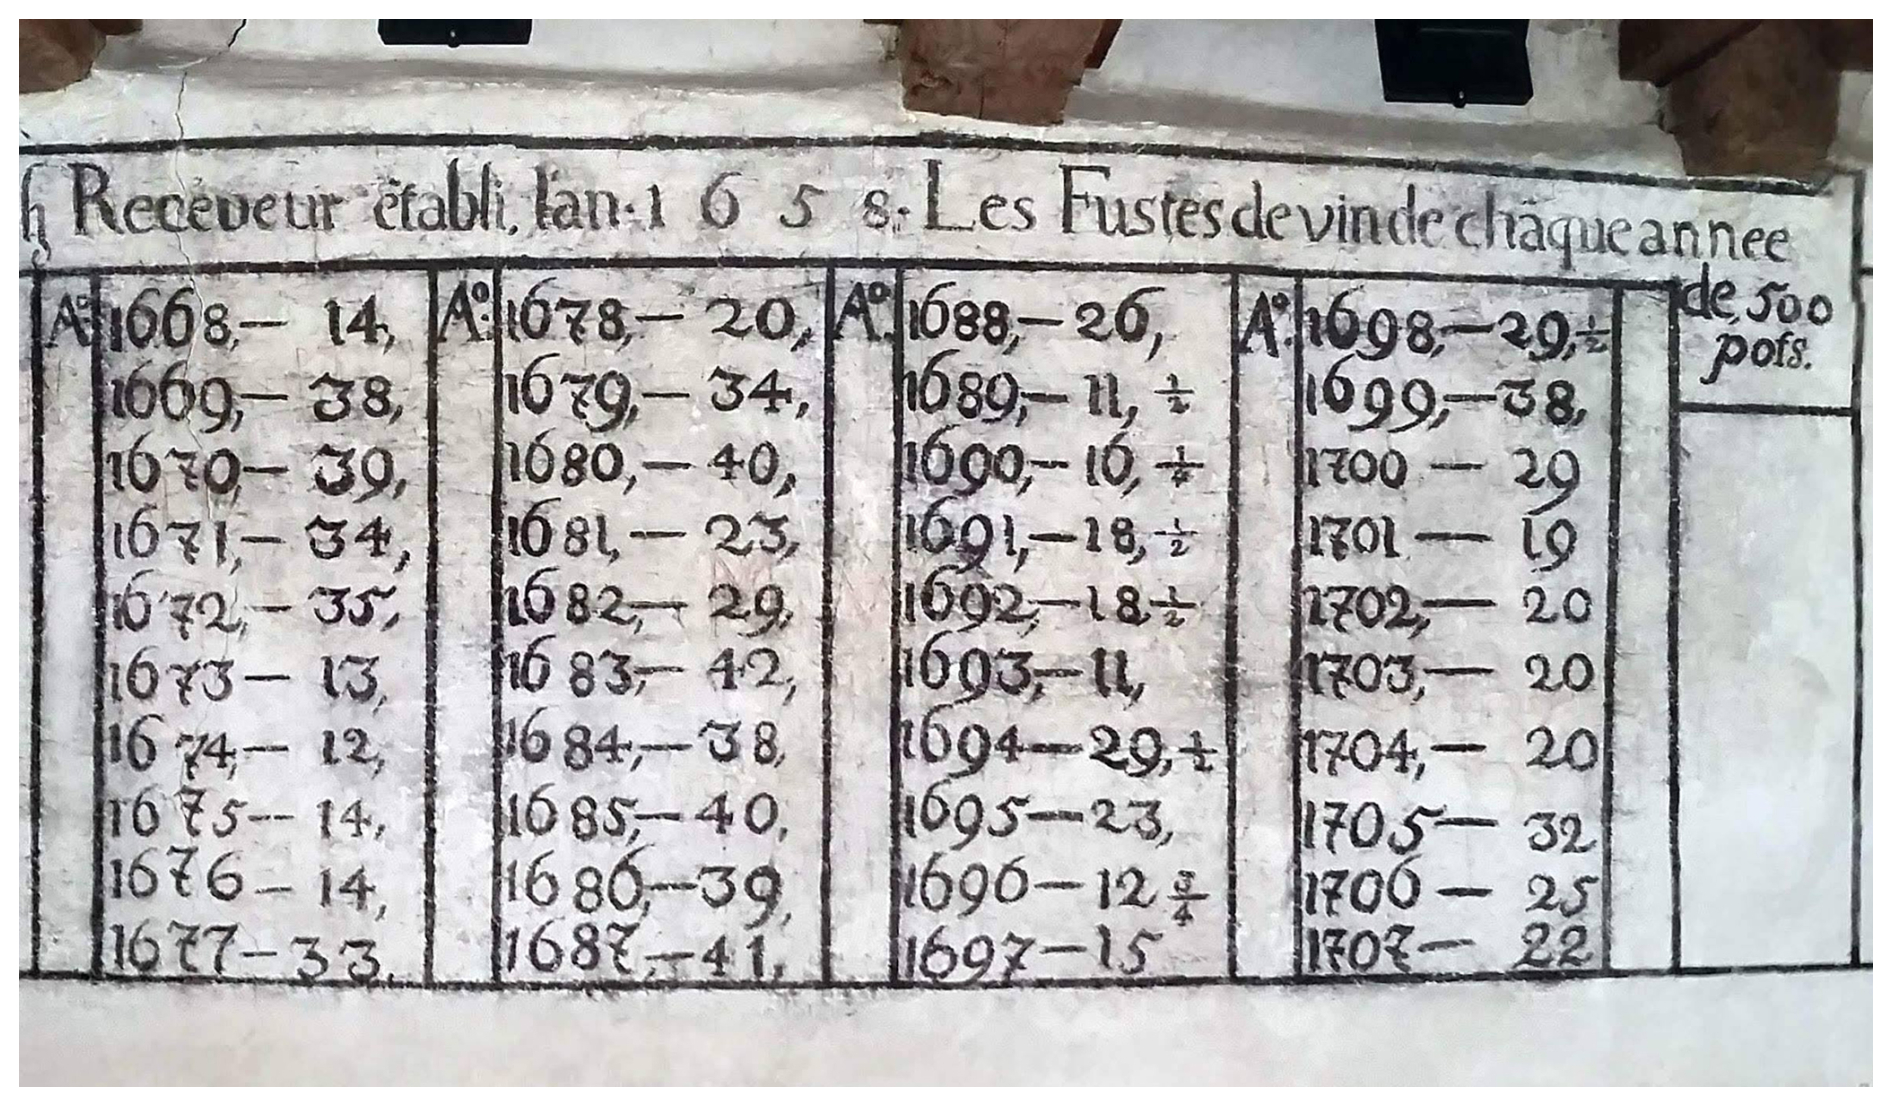 Receveur établi, l'an: 1658: Les Fustes de vin de châque annee
de 500
pots.
Aº: 1668,— 14, Aº: 1678,— 20, Aº: 1688,— 26, Aº: 1698,— 29, ½
1669,— 38, 1679,— 34, 1689,— 11, ½ 1699,— 38,
1670,— 39, 1680,— 40, 1690,— 16, 1700 — 29
1671,— 34, 1681,— 23, 1691,— 18, ½ 1701 — 19
1672,— 35, 1682,— 29, 1692,— 18 ½ 1702,— 20
1673 — 13, 1683,— 42, 1693,— 11, 1703,— 20
1674,— 12, 1684,— 38, 1694 — 29, ½ 1704,— 20
1675 — 14, 1685,— 40, 1695 — 23, 1705 — 32
1676 — 14, 1686,— 39, 1696 — 12 ¾ 1706 — 25
1677 — 33, 1687,— 41, 1697 — 15 1707 — 22